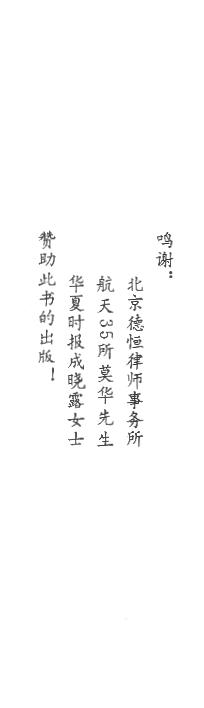 鸣谢：
北京德恒律师事务所
航天35所莫华先生
华夏时报成晓露女士
赞助此书的出版！